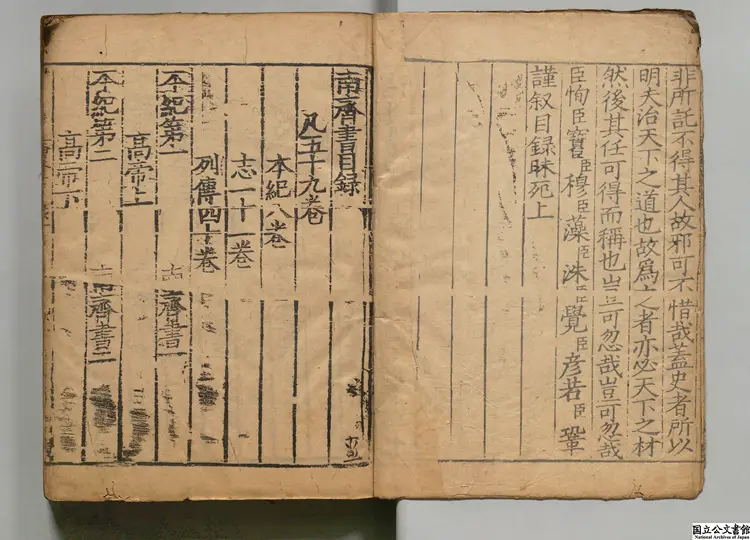 非所託不得其人故邪可不惜哉蓋史者所以
明夫治天下之道也故爲之者亦必天下之材
然後其任可得而稱也豈可忽哉豈可忽哉
臣恂臣寶臣穆臣藻臣洙臣覺臣彦若臣鞏
謹叙目録昧死上
南齊書目録
凡五十九卷
本紀八卷
志一十一卷
列傳四十卷
本紀第一 南齊書一
高帝上
本紀第二 南齊書二
高帝下
国立公文書館
National Archives of Japan